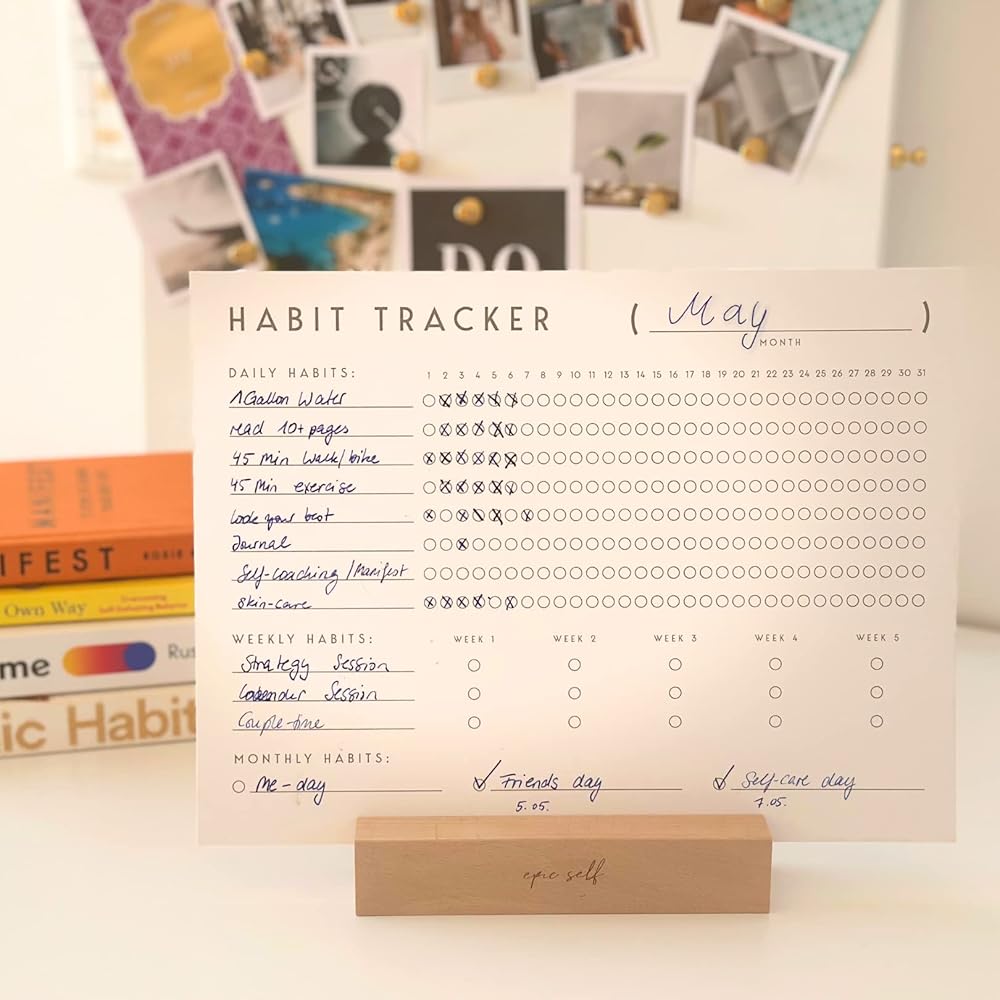 DO
HABIT TRACKER ( May )
MONTH
DAILY HABITS: 1 2 3 4 5 6 7 8 9 10 11 12 13 14 15 16 17 18 19 20 21 22 23 24 25 26 27 28 29 30 31
1 Gallon Water
read 10+ pages
45 Min Walk/bike
45 Min exercise
look your best
Journal
Self-coaching /Manifest
Skin-care
WEEKLY HABITS: WEEK 1 WEEK 2 WEEK 3 WEEK 4 WEEK 5
Strategy Session
Session
Couple-time
MONTHLY HABITS:
Me-day Friends day Self-care day
5.05. 7.05.
epic self
IFEST
Own Way Overcoming
Self-Defeating Behavior
me Rus
ic Habit